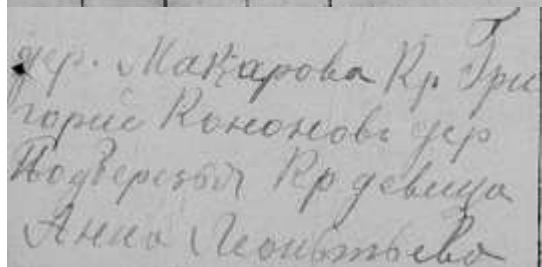 дер. Макарова Кр. Гри
горие Кононовъ дер
Подберезья Кр девица
Анна Леонтьева